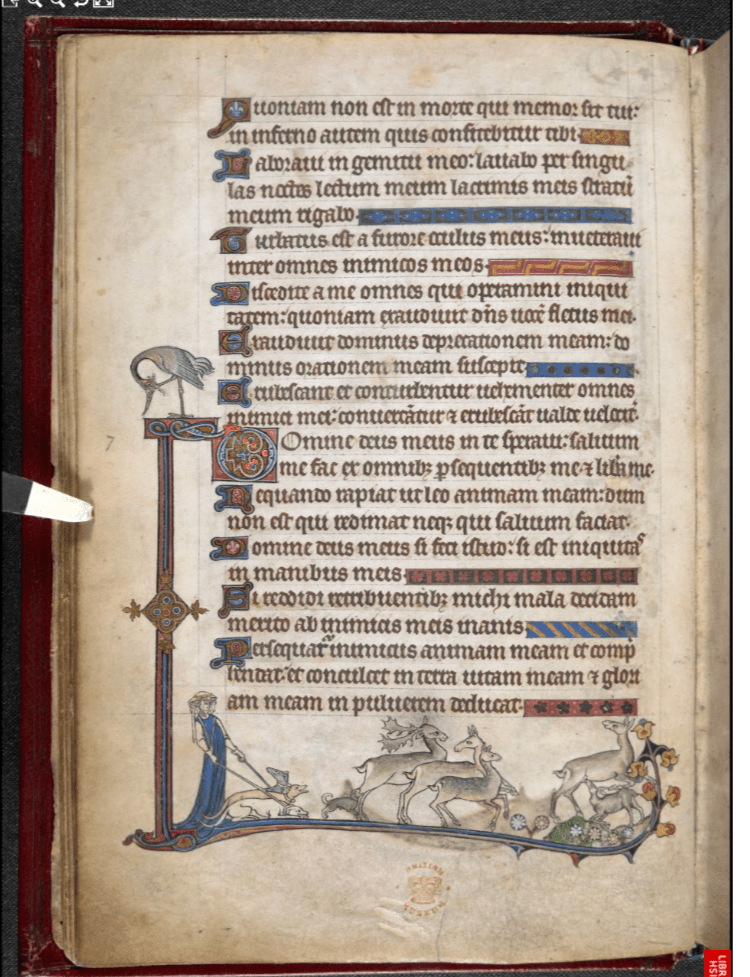 Quoniam non est in morte qui memor sit tui:
in inferno autem quis confitebitur tibi.
Laboraui in gemitu meo: lauabo per singu
las noctes lectum meum lacrimis meis stratū
meum rigabo.
Turbatus est a furore oculus meus: inueteraui
inter omnes inimicos meos.
Discedite a me omnes qui operamini iniqui
tatem: quoniam exaudiuit dn̄s uocē fletus mei.
Exaudiuit dominus deprecationem meam: do
minus orationem meam suscepit.
Erubescant et conturbentur uehementer omnes
inimici mei: conuertātur ⁊ erubescāt ualde uelocit̄.
Domine deus meus in te speraui: saluum
me fac ex omnibꝫ ꝑsequentibꝫ me ⁊ libāme.
Nequando rapiat ut leo animam meam: dum
non est qui redimat neqꝫ qui saluum faciat.
Domine deus meus si feci istud: si est iniquitaˢ
in manibus meis.
Si reddidi retribuentibꝫ michi mala decidam
merito ab inimicis meis inanis.
Persequatᷣ inimicus animam meam et comp̄
hendat: et conculcet in terra uitam meam ⁊ glori
am meam in puluerem deducat.
7
BRITISH
MUSEUM